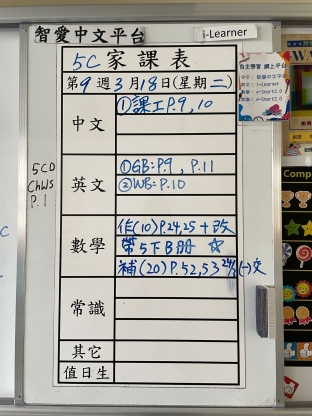 智愛中文平台
i-Learner
5C 家課表
第9週3月18日(星期二)
中文
①課工P.9,10
英文
①GB:P.9, P.11
②WB:P.10
數學
作(10)P.24,25+改
帶5下B冊 ☆
補(20)P.52,53 24/3(一)交
常識
其它
值日生
5CD
ChWs
P.1
自主學習 網上平台